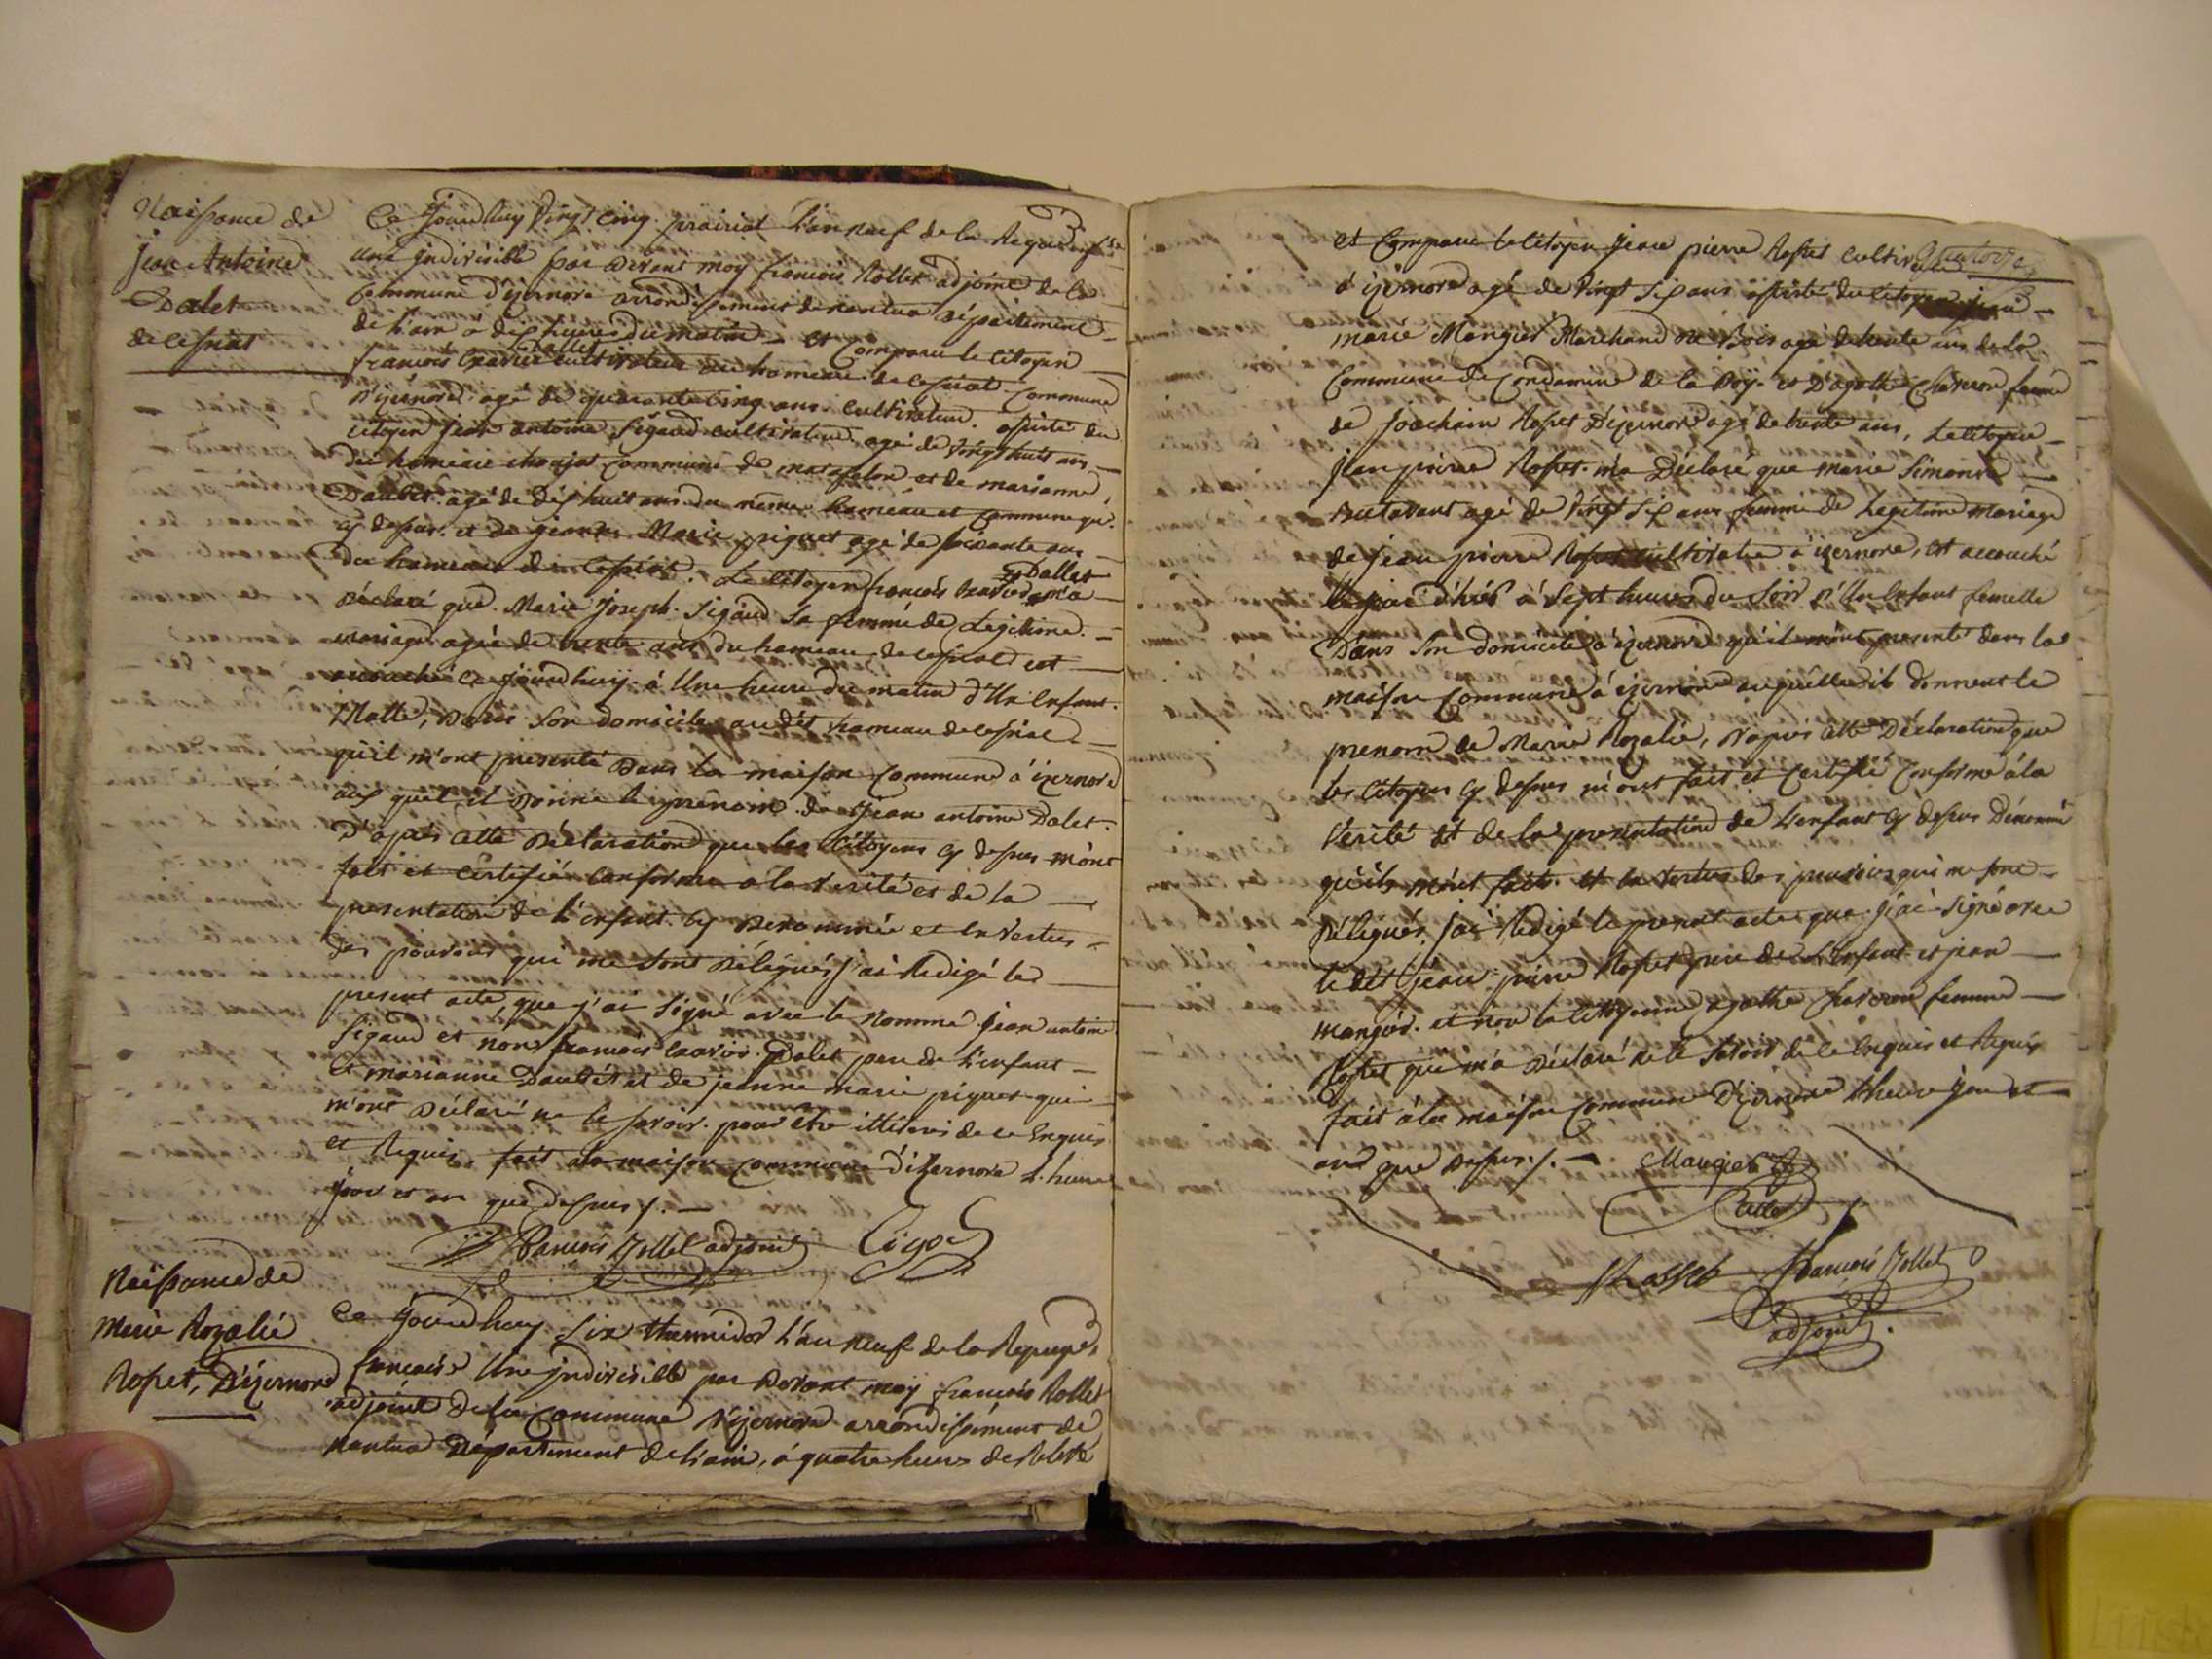 Naissance de
jean Antoine
Dalet
de cessiat
Ce Jourdhuy vingt cinq prairial L'an neuf de la Repu. fse
une jndivisible par devant moy francois Rollet adjoint de la
Commune d'izernore arrondissement de nantua département
de L'ain à dix heures du matin est Comparu le Citoyen
Dallet
francois Xavier cultivateur au hameau de cessiat commune
D'izernore agé de quarante cinq ans cultivateur. assisté du
citoyen jean antoine Sigaud cultivateur agé de vingt huit ans
du hameau commune de matafelon et de marianne
Daubet agé de dix huit ans du même hameau et commune que
cy dessus. et de jeanne Marie piquet agé de soixante ans
du hameau de Cessiat. Le Citoyen francois Xavier Dallet m'a
Déclaré que Marie Joseph Sigaud sa femme de Legitime
mariage agée de trente ans du hameau de cessiat est
accouché ce jourdhuy à Une heure du matin d'Un Enfant
Malle, dans son domicile au dit hameau de cessiat
qu'il m'ont presenté dans la maison Commune à izernore
auquel il donne le prénom de jean antoine Dalet.
D'apres cette Déclaration que les Citoyens cy dessus m'ont
fait et certifié conforme a la verité et de la
presentation de L'enfant cy denommé et en vertus
des pouvoirs qui me sont délégués j'ai Redigé le
present acte que j'ai signé avec le nommé jean antoine
Sigaud et non francois Xavier Dalet pere de L'enfant
Et marianne Daubet et de jeanne marie piquet qui
m'ont déclaré ne le savoir pour être illitéré de ce Enquis
et Requis, fait a la maison commune d'izernore L'heure
jour et an que dessus /.
francois Rollet adjoint Sigod
Naissance de
Marie Rozalie
Rosset, D'izernore
Ce Jourdhuy six thermidor L'an neuf de la Repupe
francaise Une jndivisible par devant moy francois Rollet
adjoint de la Commune d'izernore arrondissement de
nantua Département de L'ain, à quatre heures de Relevé
quatorze
est Comparu le Citoyen jean pierre Rosset cultivateur
à izernore agé de vingt six ans assisté du Citoyen jean
marie Mangier Marchand de Bois agé de trente ans de la
Commune de Condamine de la Doÿ et D'agathe Charvon femme
de Joachim Rosset D'izernore agé de trente ans, Le Citoyen
jean pierre Rosset m'a Déclaré que marie Simonne
agé de vingt six ans femme de Legitime mariage
de jean pierre Rosset cultivateur à izernore, est accouché
Le jour d'hier à Sept heures du soir d'Un Enfant femelle
Dans son domicile à izernore qu'il m'ont presenté dans la
maison Commune à izernore auquelle il donnent le
prenom de Marie Rozalie, D'apres cette Déclaration que
les Citoyens cy dessus m'ont fait et Certifié Conforme à la
verité et de la presentation de L'enfant cy dessus Dénommé
qu'ils m'ont fait et en vertus des pouvoirs qui me sont
délégués, j'ai Redigé le present acte que j'ai signé avec
le dit jean pierre Rosset pere de L'enfant et jean
mangier. et non la Citoyenne agathe Charvon femme
Rosset qui m'a Déclaré ne le savoir de ce Enquis et Requis
fait à la maison Commune D'izernore L'heure jour et
an que dessus /.
Mangier
Rosset francois Rollet
adjoint